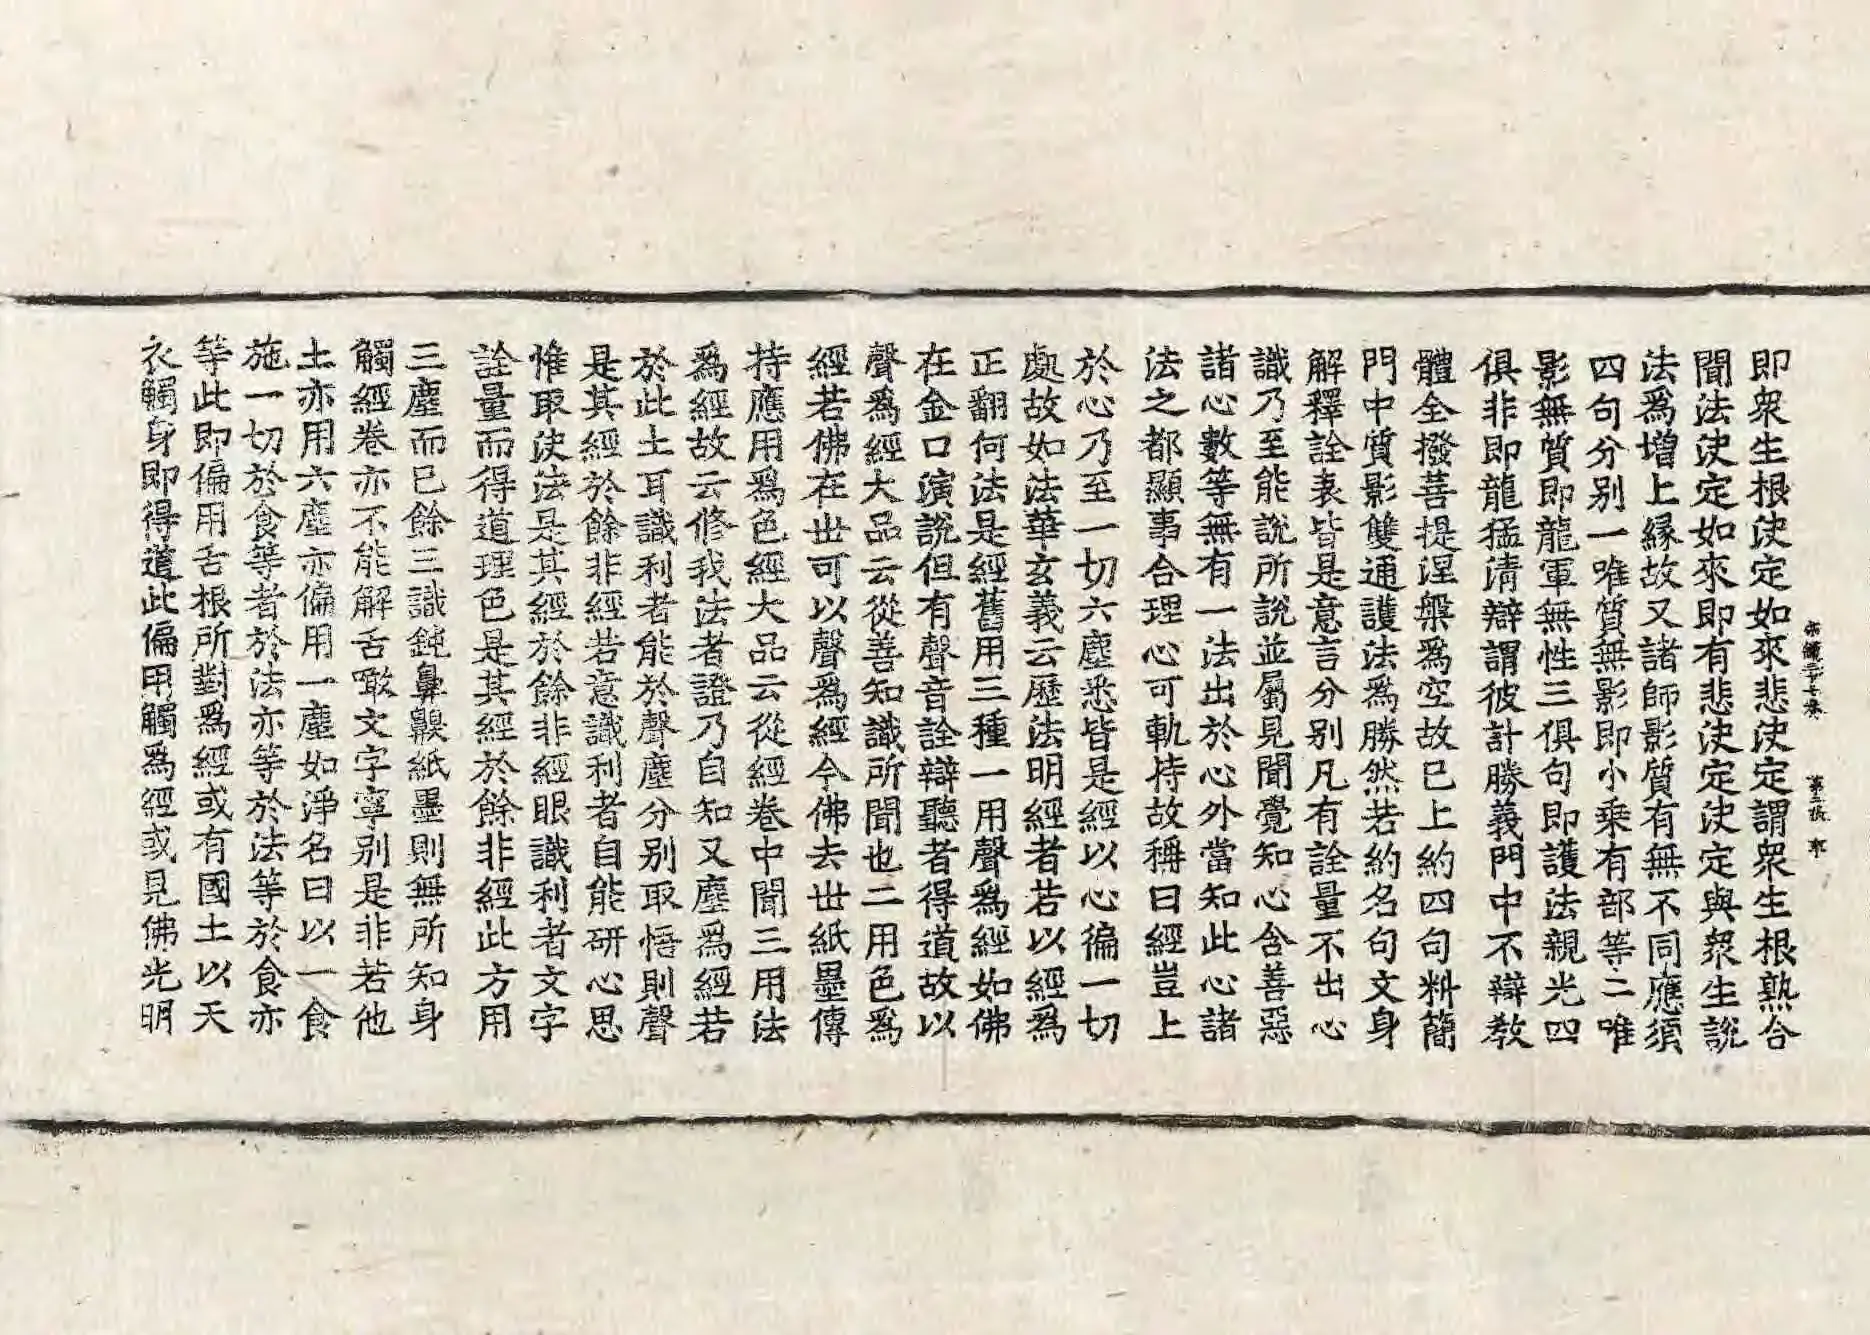 宗鏡二十七卷 第三張
即衆生根決定如來悲決定謂衆生根熟合
聞法決定如來即有悲決定決定與衆生說
法爲增上縁故又諸師影質有無不同應須
四句分別一唯質無影即小乘有部等二唯
影無質即龍軍無性三俱句即護法親光四
俱非即龍猛清辯謂彼計勝義門中不辯教
體全撥菩提涅槃爲空故已上約四句料簡
門中質影雙通護法爲勝然若約名句文身
解釋詮表皆是意言分別凡有詮量不出心
識乃至能說所說並屬見聞覺知心含善惡
諸心數等無有一法出於心外當知此心諸
法之都顯事合理心可軌持故稱曰經豈上
於心乃至一切六塵悉皆是經以心徧一切
處故如法華玄義云歷法明經者若以經爲
正翻何法是經舊用三種一用聲爲經如佛
在金口演說但有聲音詮辯聽者得道故以
聲爲經大品云從善知識所聞也二用色爲
經若佛在世可以聲爲經今佛去世紙墨傳
持應用爲色經大品云從經卷中聞三用法
爲經故云修我法者證乃自知又塵爲經若
於此土耳識利者能於聲塵分別取悟則聲
是其經於餘非經若意識利者自能研心思
惟取決法是其經於餘非經眼識利者文字
詮量而得道理色是其經於餘非經此方用
三塵而已餘三識鈍鼻齅紙墨則無所知身
觸經卷亦不能解舌噉文字寧別是非若他
土亦用六塵亦偏用一塵如淨名曰以一食
施一切於食等者於法亦等於法等於食亦
等此即偏用舌根所對爲經或有國土以天
衣觸身即得道此偏用觸爲經或見佛光明